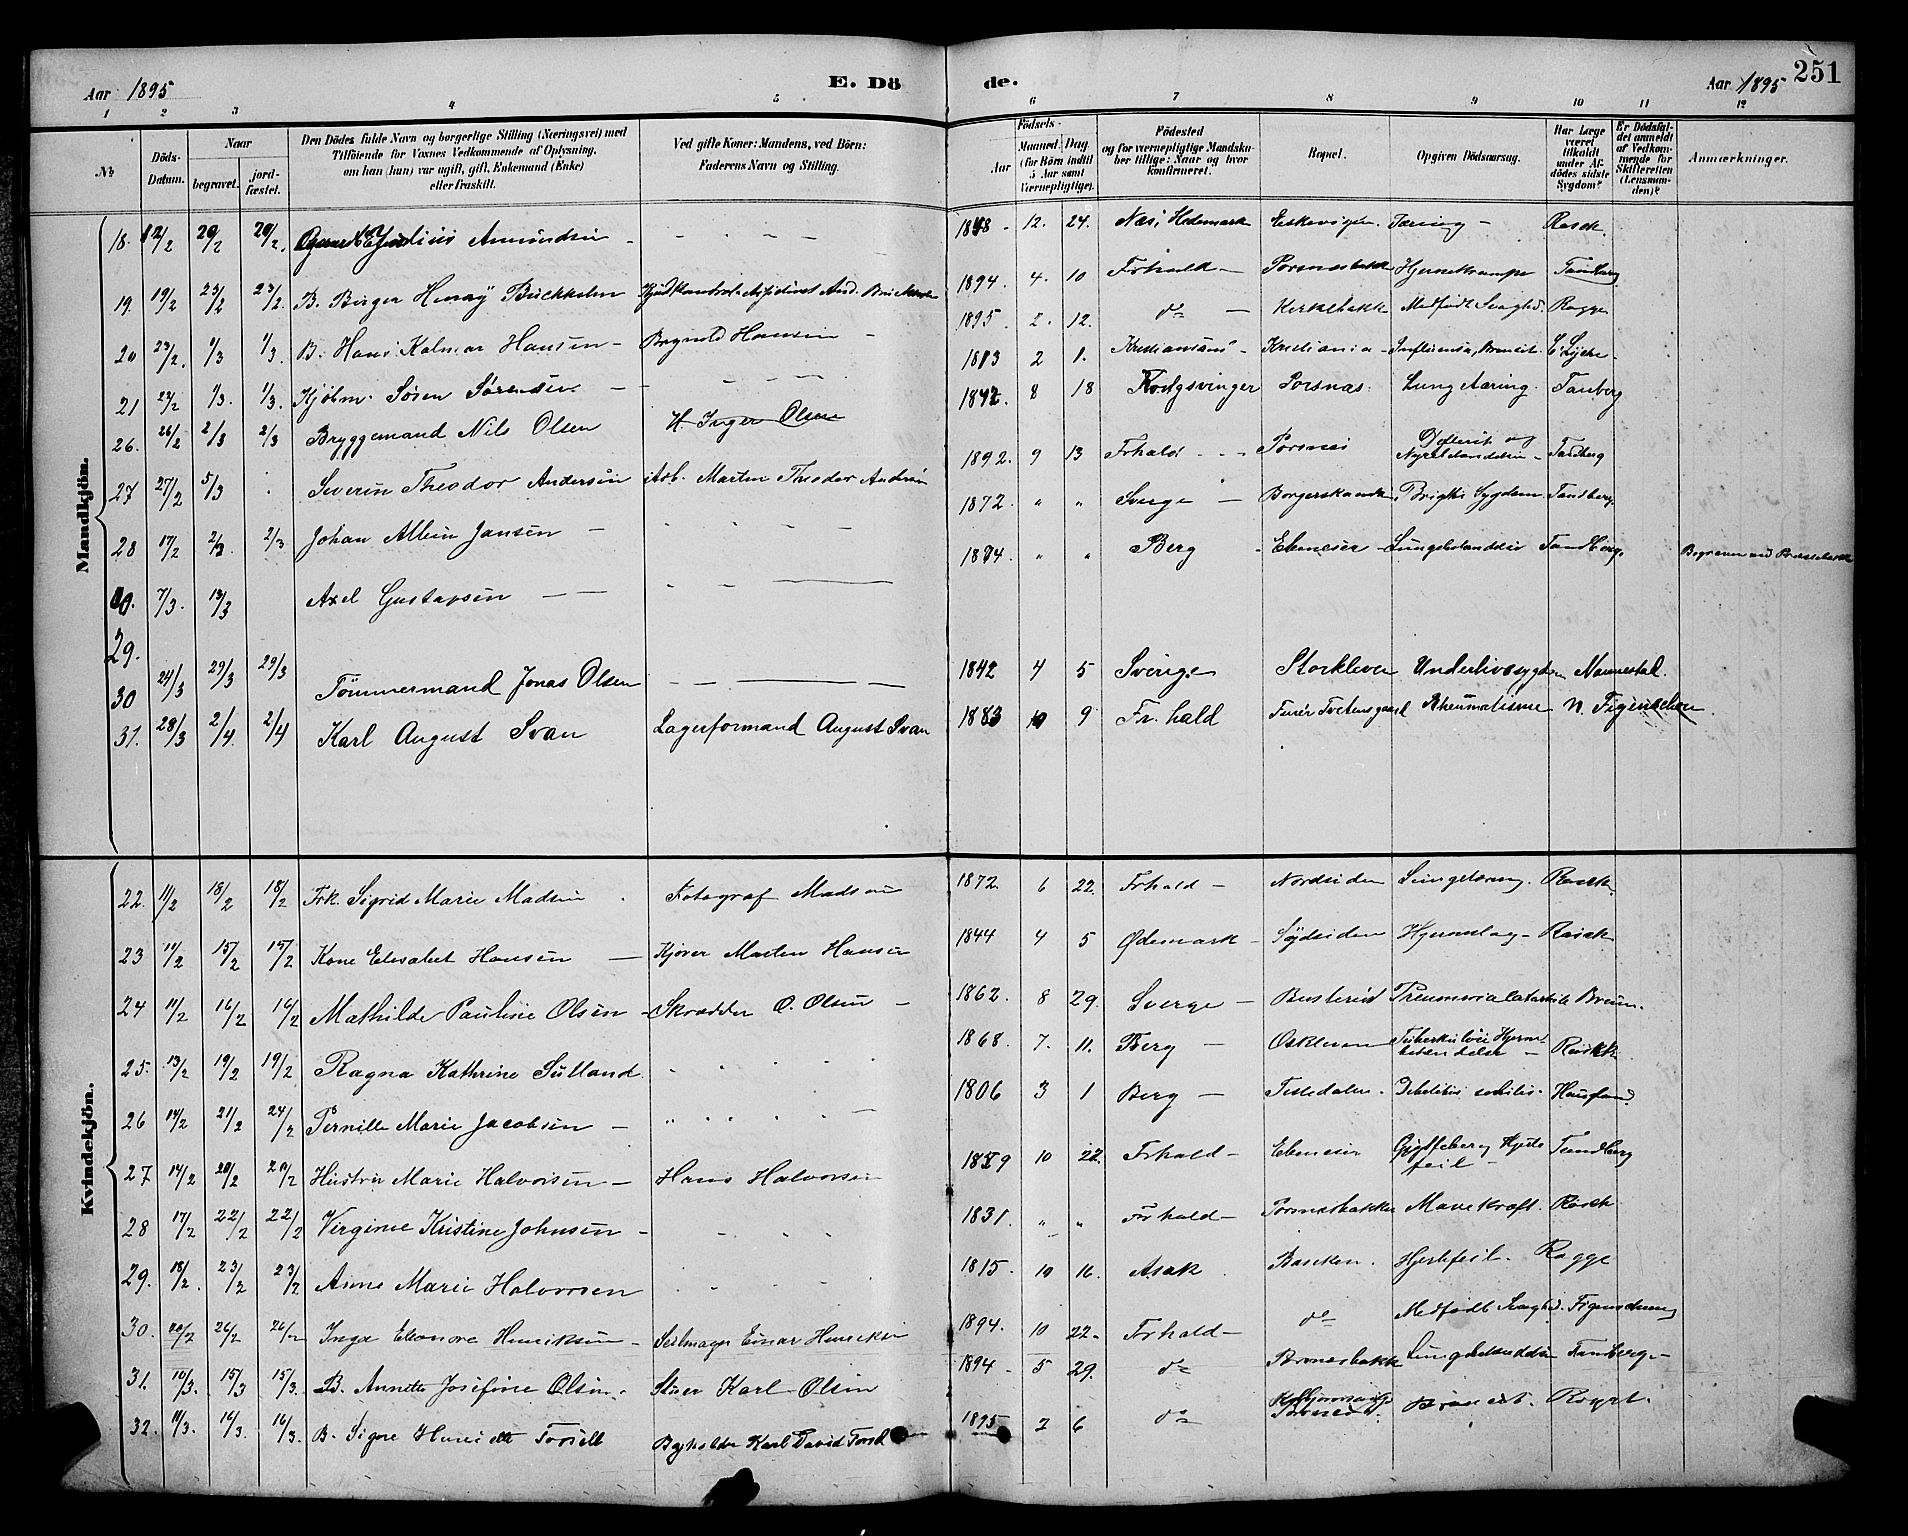 Aar 1895
E. Dö de.
Aar 1895
251
1 2 3 4 5 6 7 8 9 10 11 12
No
Döds-Datum.
Naar
begravet.
jord-fæstet.
Den Dödes fulde Navn og borgerlige Stilling (Næringsvei) med
Tilföiende for Voxnes Vedkommende af Oplysning,
om han (hun) var ugift, gift, Enkemand (Enke)
eller fraskilt.
Ved gifte Koner: Mandens, ved Börn:
Faderens Navn og Stilling.
Födsels-
Aar
Maaned. Dag.
(for Börn indtil
5 Aar samt
Vernepligtige).
Födested
og for vernepligtige Mandsku-
ber tillige: Naar og hvor
konfirmeret.
Bopæl.
Opgiven Dödsaarsag.
Har Læge
været
tilkaldt
under Af-
dödes sidste
Sygdom?
Er Dödsfal-
det anmeldt
af Vedkom-
mende for
Skifteretten
(Lensman-
den)?
Anmærkninger.
Mandkjön.
18. 12/2 20/2 20/2. Julius Amundsen - - - - 1848 - 12. 24. Næs, Hedemark Eskevigen. Tæring - Rasch.
19. 19/2 23/2 23/2. B. Birger Henry Buckholm And. Buckholm 1894. 4. 10 Frhald - Porsnæsbakk Hjernekrampe Tandberg
20 23/2. 1/3 1/3. B. Hans Kalmar Hansen - Brynold Hansen - 1895. 2. 12. do - Kirkebakk Medfödt Svaghed. Ragge
21 24/2 1/3. 1/3. Kjöbm. Sören Sörensen - - - - 1813 2 1. Kristiansus - Kristiania - Influensa, Bronkit. E. Lyche -
26. 26/2 2/3 2/3 Bryggemand Nils Olsen H. Inger Olsen 1842. 8 18 Kongsvinger Porsnæs. Lungetæring. Tanberg
27 27/2 5/3 Severin Theodor Andersen Arb. Marten Theodor Andersen 1892. 9 13 Frhald - - - Porsnæs Difterit og Nyrebetændelse - Tandberg
28 17/2 2/3. 2/3 Johan Albin Jansen - 1872. " " Sverge - Borgerskandsen Brigths Sygdom. Tandberg
10. 7/3. 13/3 Axel Gustafsen - - 1874 " " Berg Ebeneser - Lungebetændelse Tandberg. Begraven ved Prestebakk
29.
30 24/3 29/3 29/3 Tömmermand Jonas Olsen 1842 4 5 Sverige Storkleven Underlivssygdom Nannestad.
31. 28/3 2/4. 2/4 Karl August Svan Lagerformand August Svan 1883 10 9 Fr. hald Tveten gaard Rheumatisme N. Figenschou
Kvindekjön.
22. 11/2 18/2 18/2 Frk. Sigrid Marie Madsen Fotograf Madsen 1872. 6 22. Frhald - Nordsiden Lungetæring. Rasch.
23 11/2 15/2 15/2 Kone Elisabet Hansen - Kjörer Marten Hansen 1844 4 5 Ødemark - Sydsiden Hjerneslag - Rasch
24 11/2 16/2 16/2 Mathilde Pauline Olsen - Skrædder O. Olsen - 1862. 8 29. Sverge - Busterud Bruun.
25. 13/2 19/2 19/2 Ragna Kathrine Sulland 1868. 7. 11. Berg - Oskleven Tuberkulös Hjernebetændelse - Rasch
26 14/2 21/2 24/2 Pernille Marie Jacobsen - 1806 3 1 Berg - Tistedalen. Debilitas senilis. Hansand.
27 14/2 20/2 20/2 Hustru Marie Halvorsen - Hans Halvorsen 1859 10 22. Frhald - Ebeneser Hjertefeil - Tandberg
28 17/2 22/2 22/2 Virginie Kristine Johnsen - 1831. " " Frhald - Porsnæsbakken Mavekræft. Rasch
29. 18/2. 23/2 23/2 Anne Marie Halvorsen 1815. 10 16. Asak Banken. Hjertefeil. Ragge
30. 20/2 26/2 26/2 Inga Eleonore Henriksen - Seilmager Einar Henriksen 1894. 10 22. Frhald - do Medfödt Svaghed. Figenschou
31. 10/3. 15/3 15/3. B. Annette Josefine Olsen. Stuer Karl Olsen 1894 - 5 29. do Porsnæsbakken Lungebetændelse Tandberg -
32. 11/3. 16/3. 16/3. B. Signe Henriette Torsell Karl David Torsel 1895 2 6 do Bronkit. Rogge.